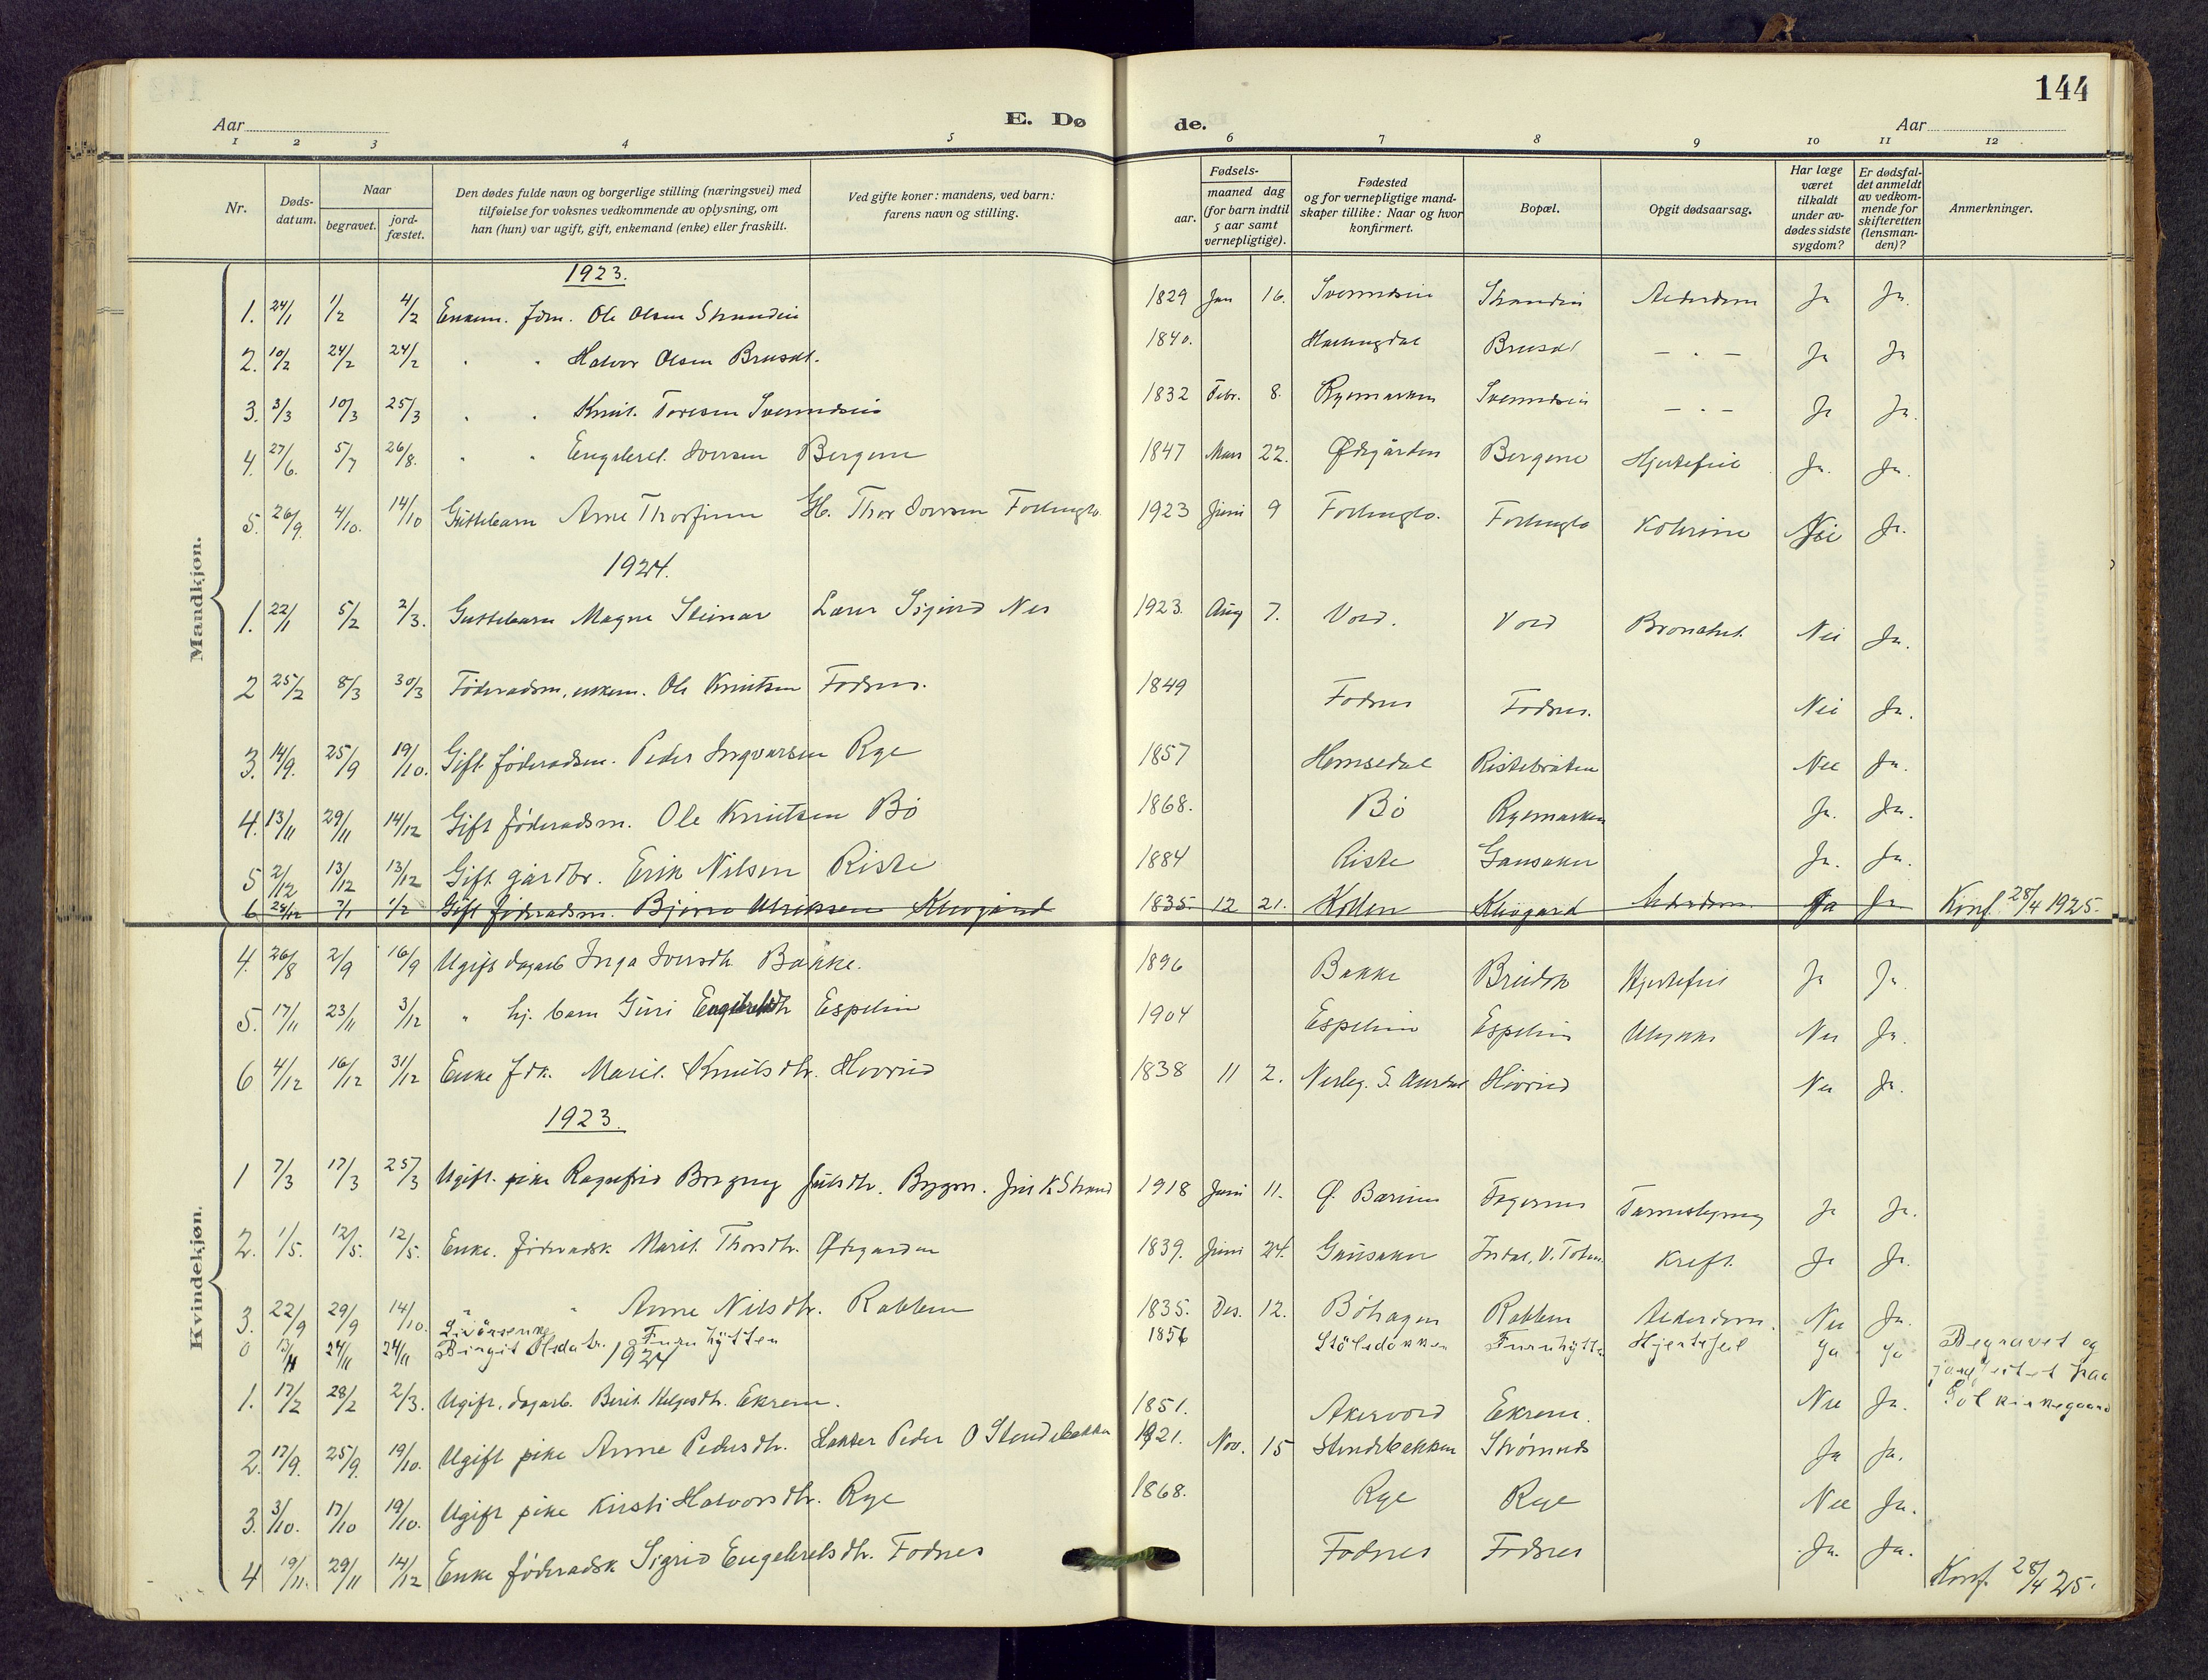 144
Aar
E. Dø
de.
Aar
1 2 3 4 5 6 7 8 9 10 11 12
Nr.
Døds-
datum.
Naar
begravet.
jord-
fæstet.
Den dødes fulde navn og borgerlige stilling (næringsvei) med
tilføielse for voksnes vedkommende av oplysning, om
han (hun) var ugift, gift, enkemand (enke) eller fraskilt.
Ved gifte koner: mandens, ved barn:
farens navn og stilling.
Fødsels-
aar.
maaned dag
(for barn indtil
5 aar samt
vernepligtige).
Fødested
og for vernepligtige mand-
skaper tillike: Naar og hvor
konfirmert.
Bopæl.
Opgit dødsaarsag.
Har læge
været
tilkaldt
under av-
dødes sidste
sygdom?
Er dødsfal-
det anmeldt
av vedkom-
mende for
skifteretten
(lensman-
den)?
Anmerkninger.
Mandkjøn.
1923.
1. 24/1 1/2 4/2 Enkem. fdm. Ole Olsen Strandin 1829 Jan 16. Svenndsin Strandin Alderdom Ja Ja.
2. 10/2 24/2 24/2 " " Halvor Olsen Brusdl. 1840. Hallingdal Brusdl — " — Ja Ja
3. 3/3 10/3 25/3 " " Knut. Toresen Svenndsin 1832 Febr. 8. Ryemarken Svenndsin — " — Ja Ja.
4. 27/6. 5/7 26/8. " " Engebret. Iversen Bergene 1847 Mars 22. Ødegården Bergene Hjertefeil Ja. Ja.
5. 26/9. 4/10. 14/10 Guttebarn Arne Thorfinn Gb. Thor Iversen 1923 Juni 9 Kolerine Nei Ja.
1924.
1. 22/1 5/2 2/3. Guttebarn Magne Steinar Lærer Sigurd Nes 1923. Aug 7. Vold. Vold Bronchit. Nei Ja.
2 25/2 8/3 30/3 Föderadsm, enkem. Ole Knutsen Fodnes. 1849 Fodnes Fodnes. Nei Ja.
3. 14/9. 25/9 19/10. Gift föderadsm. Peder Ingvarsen Rye 1857 Hemsedal Ristebråten Nei Ja.
4. 13/11 29/11 14/12 Gift föderadsm. Ole Knutsen Bö 1868. Bö Ryemarken Ja. Ja.
5 2/12 13/12 13/12 Gift gårdbr. Erik Nilsen Riste 1884 Riste Gausaker Ja. Ja.
6 28/12 7/1 1/2 Gift föderadsm. Bjørn Ulriksen Klevgård 1835. 12 21. Kollen Klevgard Alderdom Ja Ja Konf. 28/4 1925.
Kvindekjøn.
4. 26/8 2/9 16/9 Ugift dagarb Inga Iversdtr. Bakke. 1896 Bakke Hjertefeil Ja Ja.
5. 17/11 23/11 3/12 " hj. barn Guri Engebretsdtr Espelin 1904 Espelin Espelin Ulykke Nei Ja.
6 4/12 16/12 31/12 Enke fdk. Marit. Knutsdtr. Hovrud 1838 11 2. S. Aurdal Hovrud Nei Ja.
1923.
1 7/3 17/3 25/3 Ugift. pike Ragnfrid Borgny Juulsdtr. Bygm. Juul K Strand 1918 Juni 11. Ø. Bærum Fagernes Ja Ja.
2. 1/5. 12/5. 12/5. Enke. föderadsk. Marit. Thorsdtr. Ødegarden 1839. Juni 24. Gausaker V. Toten Kreft. Ja Ja.
3. 22/9 29/9 14/10. " " Anne Nilsdtr. Robben 1835. Des. 12. Böhagen Robben Alderdom. Nei Ja.
0 13/11 24/11 24/11 Livörsenke Birgit Olsdatr. Furuhytten 1856 Stölsdokken Furuhytta Hjertefeil Ja Ja Begravet og
jordfestet paa
Gol kirkegaard
1924
1. 17/2 28/2 2/3. Ugift, dagarb. Berit. Helgesdtr. Ekrem. 1851. Akervold Ekrem. Nei Ja.
2. 17/9. 25/9. 19/10. Ugift pike Anne Pedersdtr. Peder O Stendsbakken 1921. Nov. 15 Stendsbakken Strömnes Ja Ja.
3. 3/10. 17/10 19/10. Ugift pike Kirsti Halvorsdtr. Rye 1868. Rye Rye Nei Ja.
4 19/11. 29/11 14/12 Enke föderadsk Sigrid Engebretsdtr. Fodnes Fodnes Fodnes Ja. Ja.
Konf. 28/4 25.